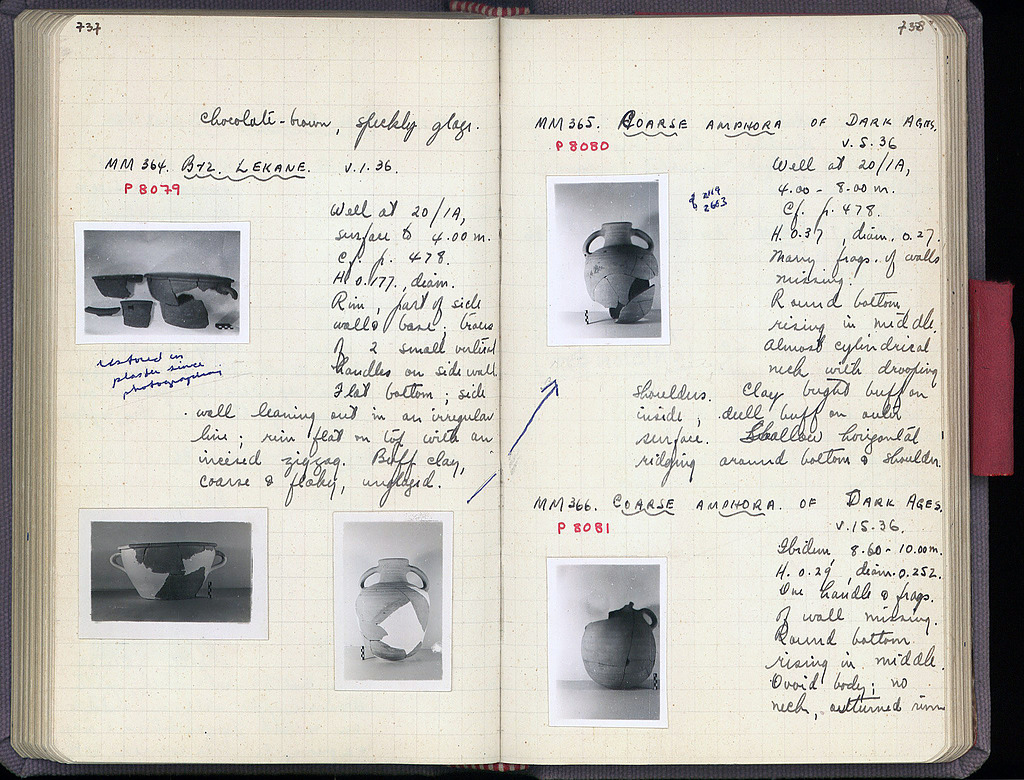 737
chocolate-brown, speckly glaze.
MM 364. BYZ. LEKANE. V.1.36.
P 8079
Well at 20/1A,
surface to 4.00 m.
Cf. p. 478.
H. 0.177, diam.
Rim, part of side
wall & base; traces
of 2 small vertical
handles on side wall.
Flat bottom; side
wall leaning out in an irregular
line; rim flat on top with an
incised zigzag. Buff clay,
coarse & flaky, unglazed.
restored in
plaster since
photographing
738
MM 365. COARSE AMPHORA OF DARK AGES.
P 8080
V.5.36
Well at 20/1A,
4.00 - 8.00 m.
Cf. p. 478.
H. 0.37, diam. 0.27.
Many frags. of walls
missing.
Round bottom
rising in middle.
Almost cylindrical
neck with drooping
shoulders. Clay bright buff on
inside; dull buff on outer
surface. Shallow horizontal
ridging around bottom & shoulder.
MM 366. COARSE AMPHORA. OF DARK AGES.
P 8081
V.15.36.
Ibidem 8.60 - 10.00 m.
H. 0.29, diam. 0.252.
One handle & frags.
of wall missing.
Round bottom
rising in middle.
Ovoid body; no
neck, outturned rim